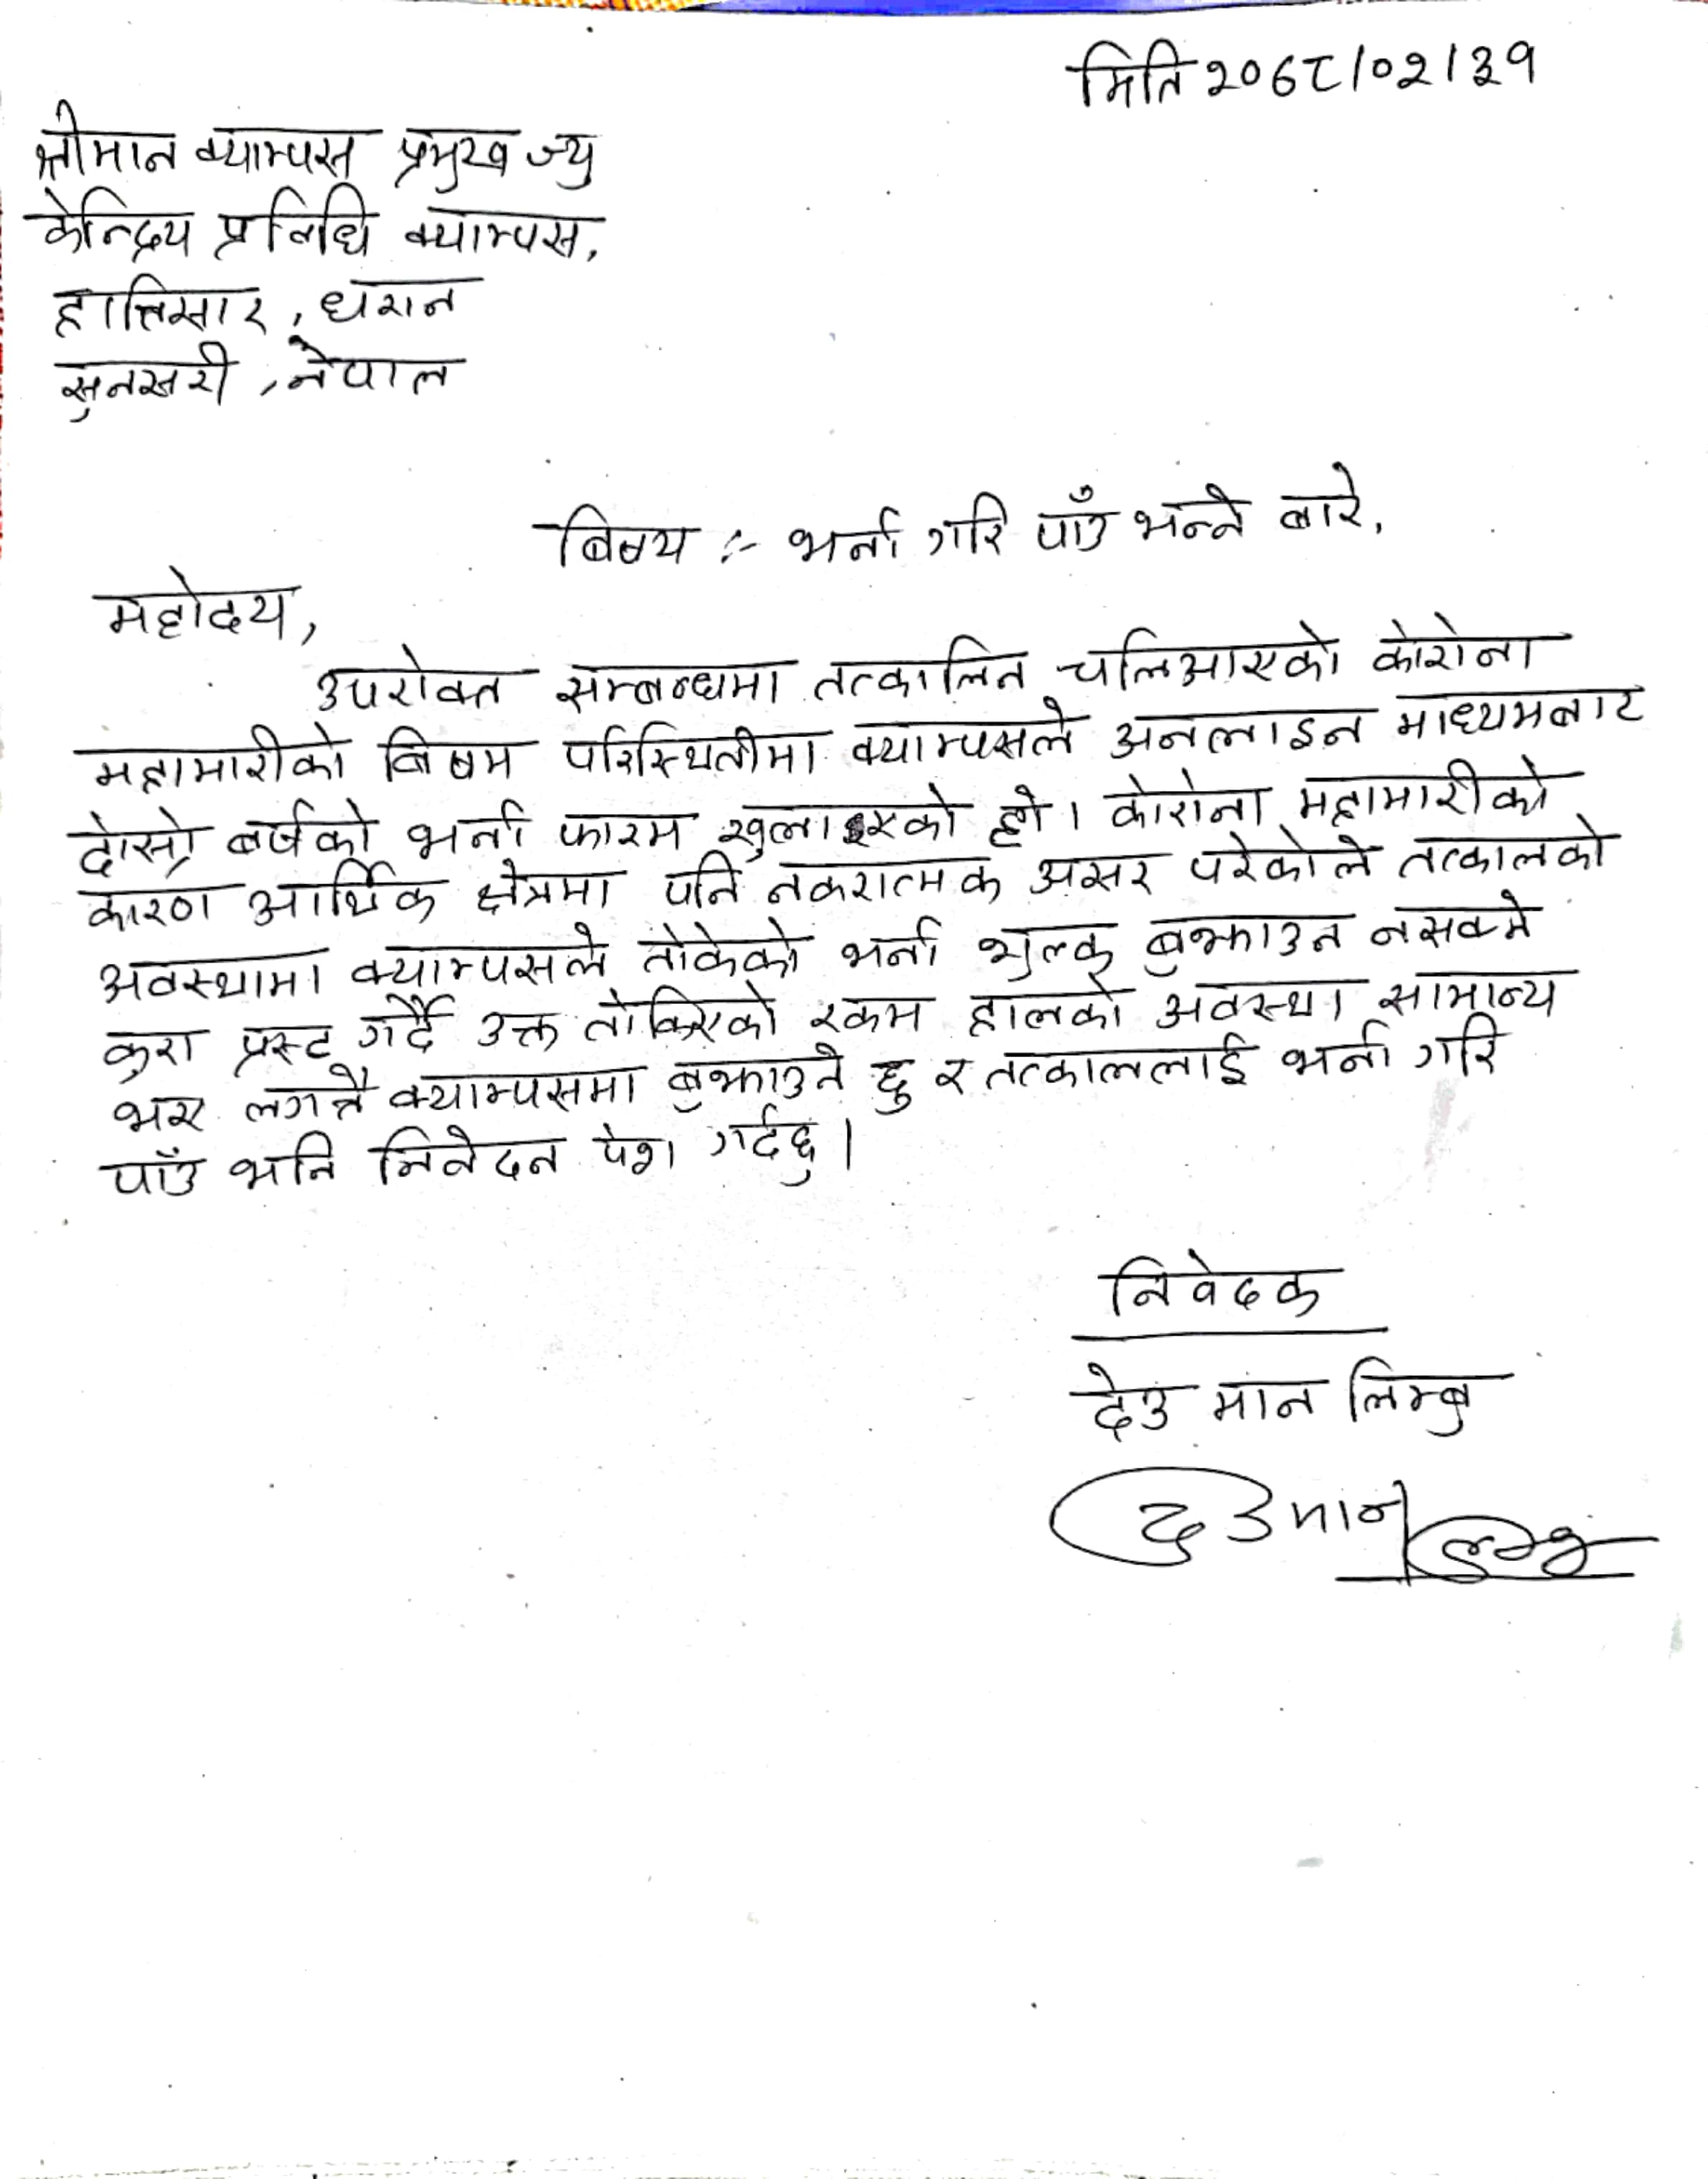 मिति २०७८/०२/३१
श्रीमान क्याम्पस प्रमुख ज्यु
केन्द्रिय प्रविधि क्याम्पस,
हात्तिसार, धरान
सुनसरी, नेपाल
बिषय :- भर्ना गरि पाँउ भन्ने बारे,
महोदय,
उपरोक्त सम्बन्धमा तत्कालित चलिआएको कोरोना
महामारीको बिषम परिस्थितीमा क्याम्पसले अनलाइन माध्यमबाट
दोस्रो बर्षको भर्ना फारम खुलाइएको हो। कोरोना महामारीको
कारण आर्थिक क्षेत्रमा पनि नकरात्मक असर परेकोले तत्कालको
अवस्थामा क्याम्पसले तोकेको भर्ना शुल्क बुझाउन नसक्ने
कुरा प्रस्ट गर्दै उक्त तोकिएको रकम हालको अवस्था सामान्य
भए लगत्तै क्याम्पसमा बुझाउने छु र तत्काललाई भर्ना गरि
पाँउ भनि निवेदन पेश गर्दछु।
निवेदक
देउ मान लिम्बु
देउमान लिम्बु